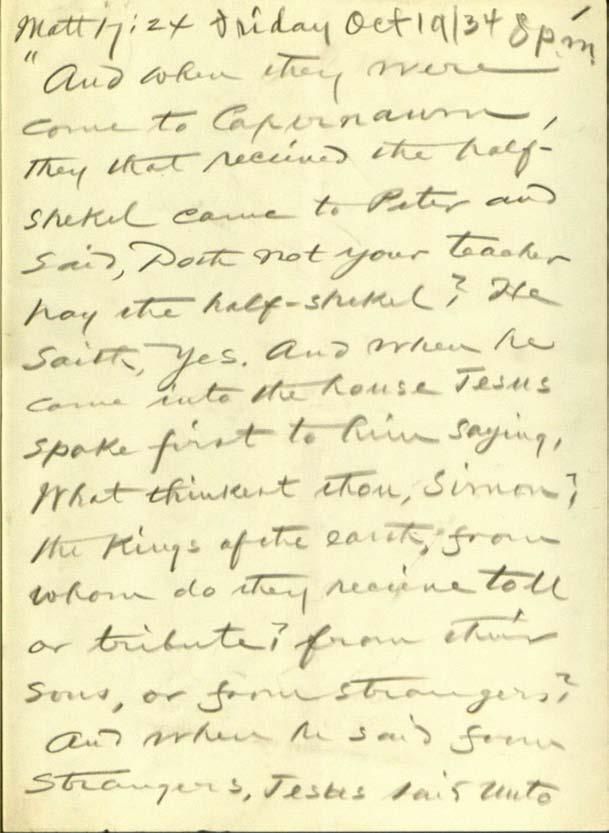 Matt 17:24 Friday Oct 19/34 8 p.m.
"And when they were
come to Capernaum,
they that received the half-
shekel came to Peter and
said, Doth not your teacher
pay the half-shekel? He
saith, Yes. And when he
came into the house Jesus
spoke first to him saying,
What thinkest thou, Simon?
the Kings of the earth, from
whom do they receive toll
or tribute? from their
sons, or from strangers?
And when he said from
strangers, Jesus said unto